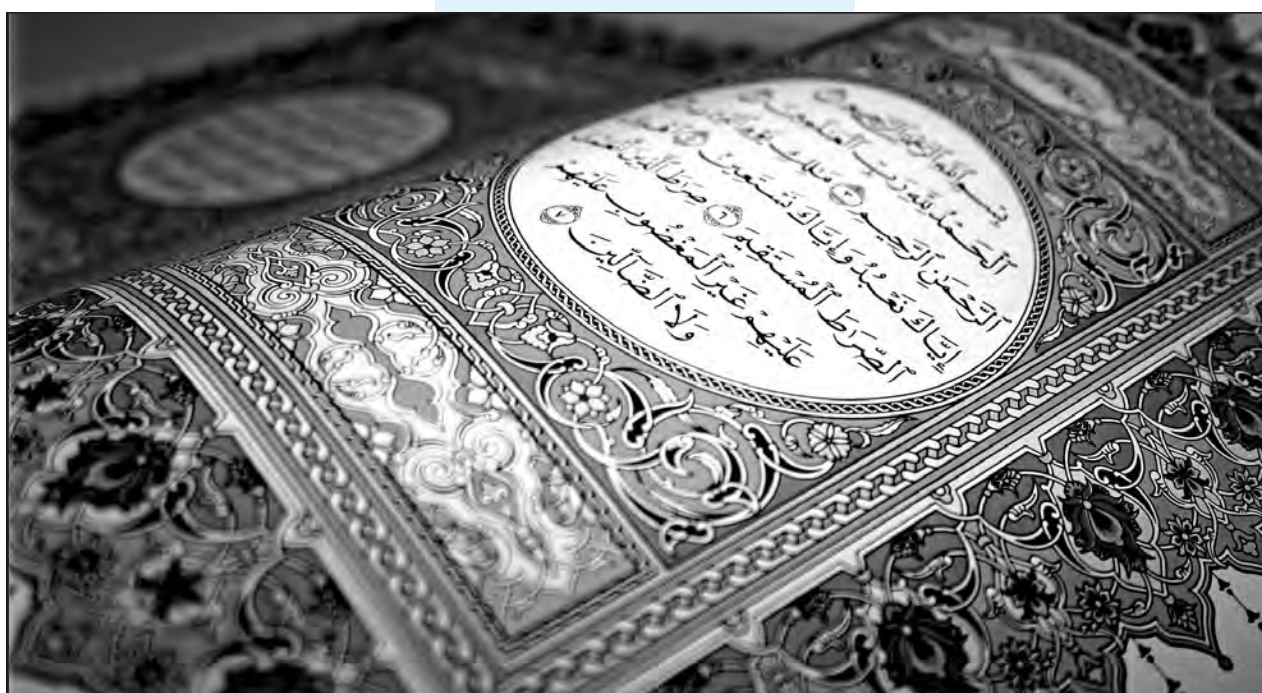 بِسْمِ ٱللَّهِ ٱلرَّحْمَٰنِ ٱلرَّحِيمِ
ٱلْحَمْدُ لِلَّهِ رَبِّ ٱلْعَٰلَمِينَ
ٱلرَّحْمَٰنِ ٱلرَّحِيمِ ٣ مَٰلِكِ يَوْمِ ٱلدِّينِ
إِيَّاكَ نَعْبُدُ وَإِيَّاكَ نَسْتَعِينُ ٥
ٱلصِّرَٰطَ ٱلْمُسْتَقِيمَ ٦ صِرَٰطَ ٱلَّذِينَ أَنْعَمْتَ
عَلَيْهِمْ غَيْرِ ٱلْمَغْضُوبِ عَلَيْهِمْ
وَلَا ٱلضَّآلِّينَ ٧